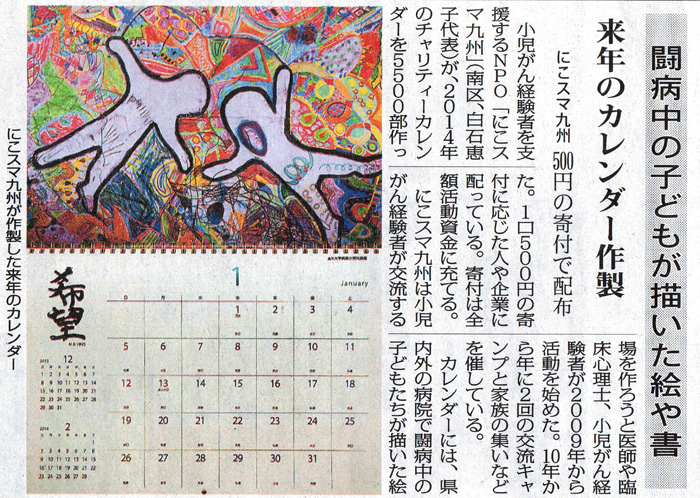 闘病中の子どもが描いた絵や書
来年のカレンダー作製
にこスマ九州 500円の寄付で配布
小児がん経験者を支
援するNPO「にこス
マ九州」(南区、白石恵
子代表)が、2014年
のチャリティーカレン
ダーを5500部作っ
た。1口500円の寄
付に応じた人や企業に
配っている。寄付は全
額活動資金に充てる。
にこスマ九州は小児
がん経験者が交流する
場を作ろうと医師や臨
床心理士、小児がん経
験者が2009年から
活動を始めた。10年か
ら年に2回の交流キャ
ンプと家族の集いなど
を催している。
カレンダーには、県
内外の病院で闘病中の
子どもたちが描いた絵
にこスマ九州が作製した来年のカレンダー
希望
1
January
日 月 火 水 木 金 土
1 2 3 4
5 6 7 8 9 10 11
12 13 14 15 16 17 18
19 20 21 22 23 24 25
26 27 28 29 30 31
2013 12
1 2 3 4 5 6 7
8 9 10 11 12 13 14
15 16 17 18 19 20 21
22 23 24 25 26 27 28
29 30 31
2014 2
1
2 3 4 5 6 7 8
9 10 11 12 13 14 15
16 17 18 19 20 21 22
23 24 25 26 27 28